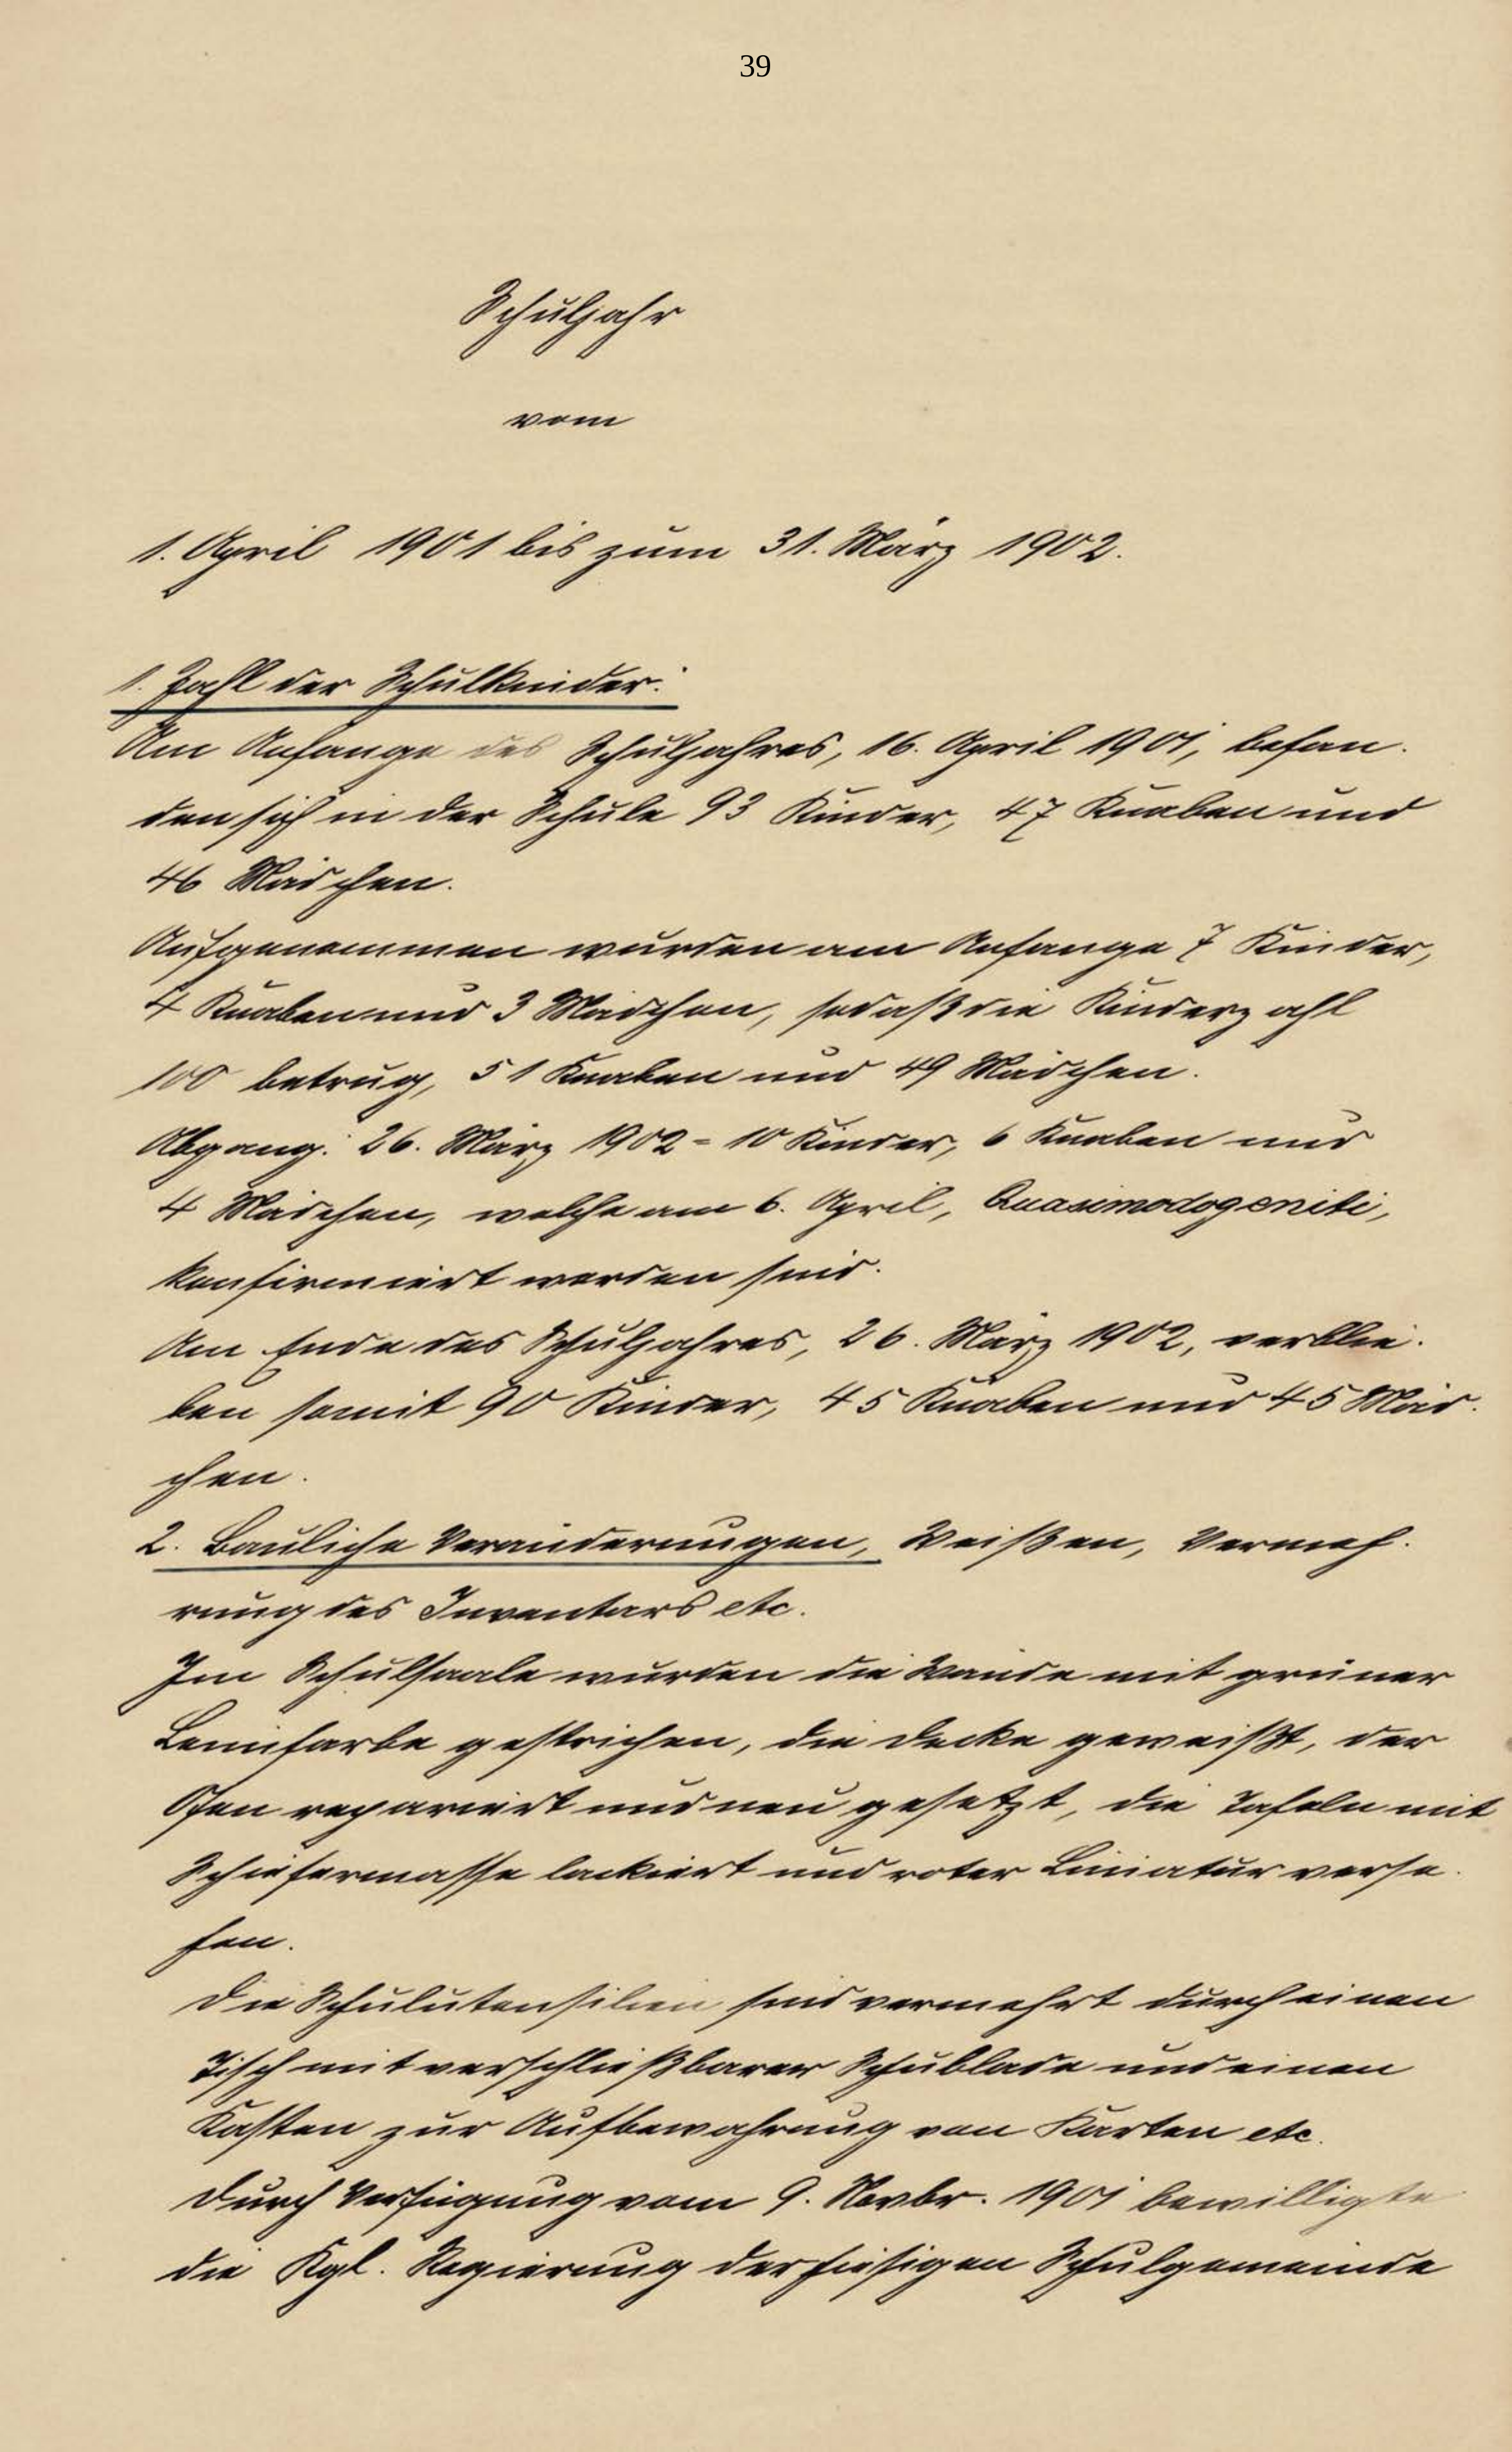 39
Schuljahr
vom
1. April 1901 bis zum 31. März 1902.
1. Zahl der Schulkinder:
Am Anfange des Schuljahres, 16. April 1901, befan-
den sich in der Schule 93 Kinder, 47 Knaben und
46 Mädchen.
Aufgenommen wurden am Anfange 7 Kinder,
4 Knaben und 3 Mädchen, sodaß die Kinderzahl
100 betrug, 51 Knaben und 49 Mädchen.
Abgang: 26. März 1902 = 10 Kinder, 6 Knaben und
4 Mädchen, welche am 6. April, Quasimodogeniti,
konfirmiert worden sind.
Am Ende des Schuljahres, 26. März 1902, verblie-
ben somit 90 Kinder, 45 Knaben und 45 Mäd-
chen.
2. Bauliche Veränderungen, Weißen, Vermeh-
rung des Inventars etc.
Im Schulsaale wurden die Wände mit grüner
Leimfarbe gestrichen, die Decke geweißt, der
Ofen repariert und neu gesetzt, die Tafeln mit
Schiefermasse lackiert und roter Liniatur verse-
hen.
Die Schulutensilien sind vermehrt durch einen
Tisch mit verschließbarer Schublade und einen
Kasten zur Aufbewahrung von Karten etc.
Durch Verfügung vom 9. Novbr. 1901 bewilligte
die Kgl. Regierung der hiesigen Schulgemeinde